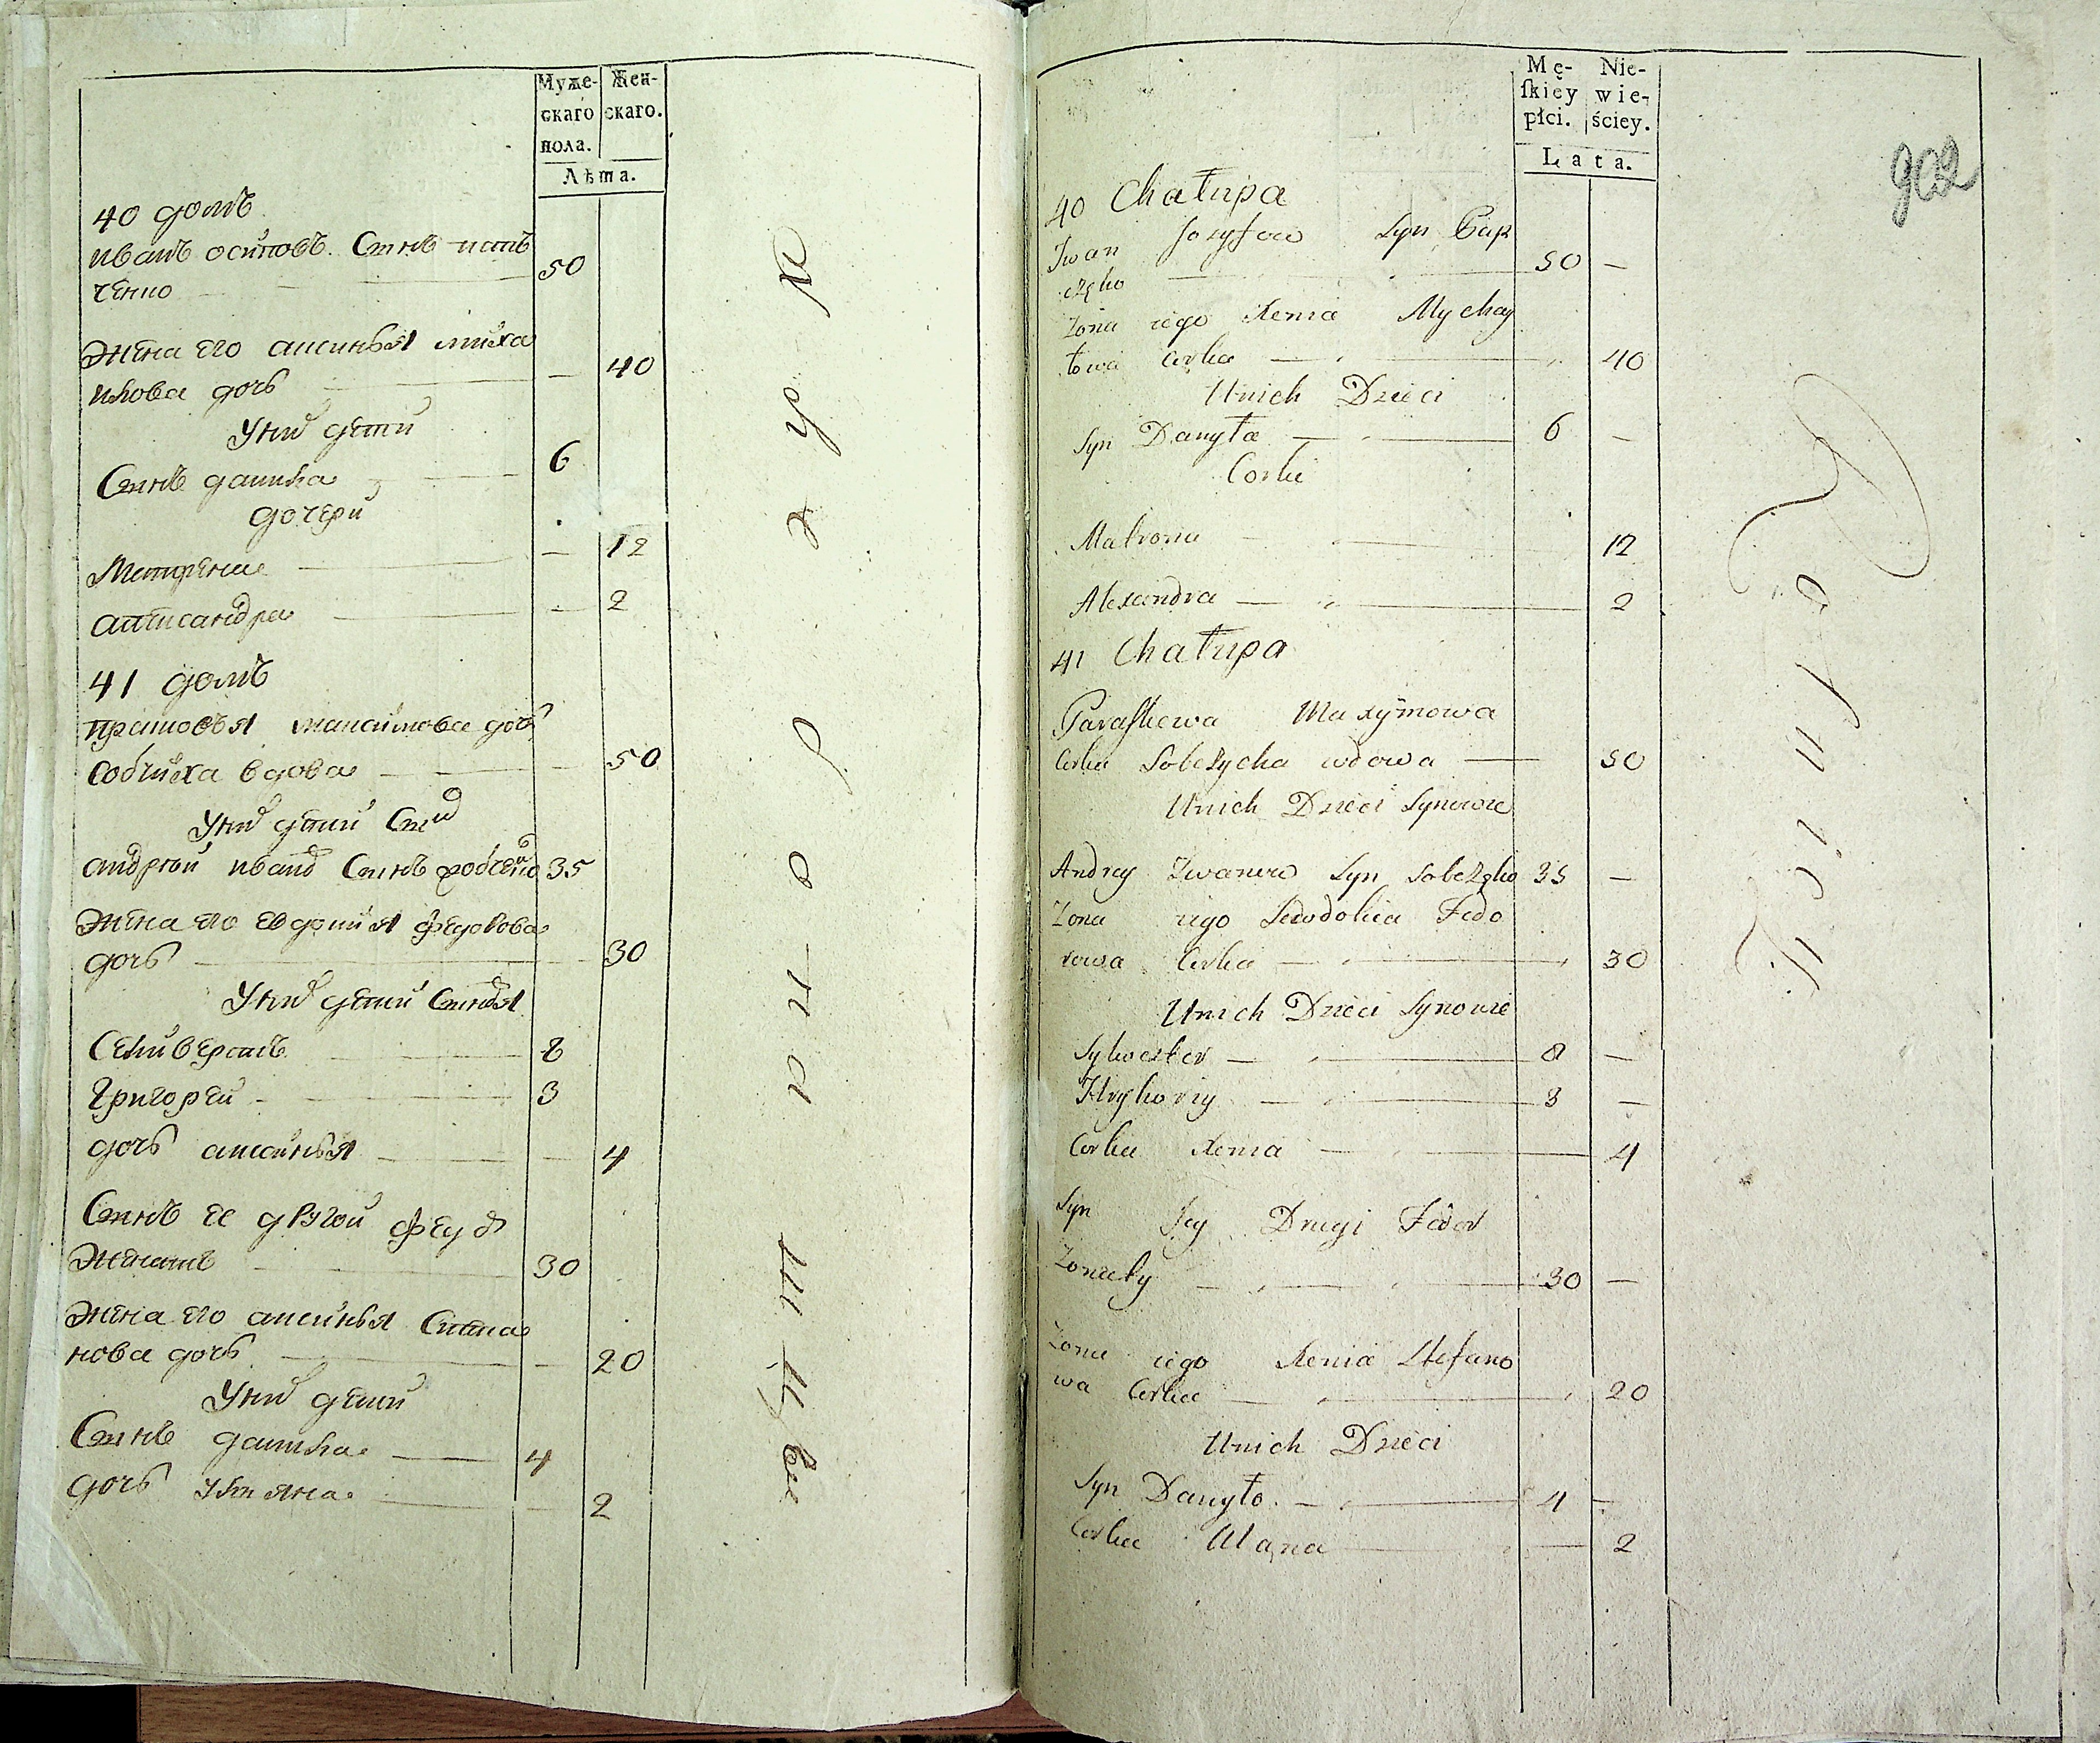 Муже-
скаго
пола.
Жен-
скаго.
Лѣта.
40 домъ
иванъ осиповъ Сынъ
50
жена его аксинья михаи
40
лова дочь
Униⷯ дети
Сынъ данила 6
дочери
Матрена 12
александра 2
41 домъ
прасковья максимова дочь
собчиха вдова 50
Униⷯ дети
андрей Сынъ 35
жена его евдокия федорова
дочь 30
Униⷯ дети Сыновья
Селиверстъ 8
Григорей 3
дочь аксинья 4
Сынъ ее другой
женатъ 30
жена его аксинья Степа
нова дочь 20
Униⷯ дети
Сынъ данила 4
дочь ульяна 2
Mę-
ſkiey
płci.
Nie-
wie-
ściey.
Lata.
902
40 Chałupa
Jwan Jozyfow Syn Gap
częko 50 —
Zona iego Xenia Mychay
łowa Corka 40
Unich Dzieci
Syn Danyło 6 —
Corki
Matrona 12
Alexandra 2
41 Chałupa
Paraſkewa Maxymowa
Corka Sobczycha wdowa 50
Unich Dzieci Synowie
Andrey Iwanow Syn Sobczęko 35 —
Zona iego Fedo
rowa Corka 30
Unich Dzieci Synowie
Sylwester 8 —
Hryhoriy 3 —
Corka Xenia 4
Syn Jey Drugi Fedor
Zonaty 30 —
Zona iego Xenia Stefano
wa Corka 20
Unich Dzieci
Syn Danyło 4 —
Corka Ulana 2